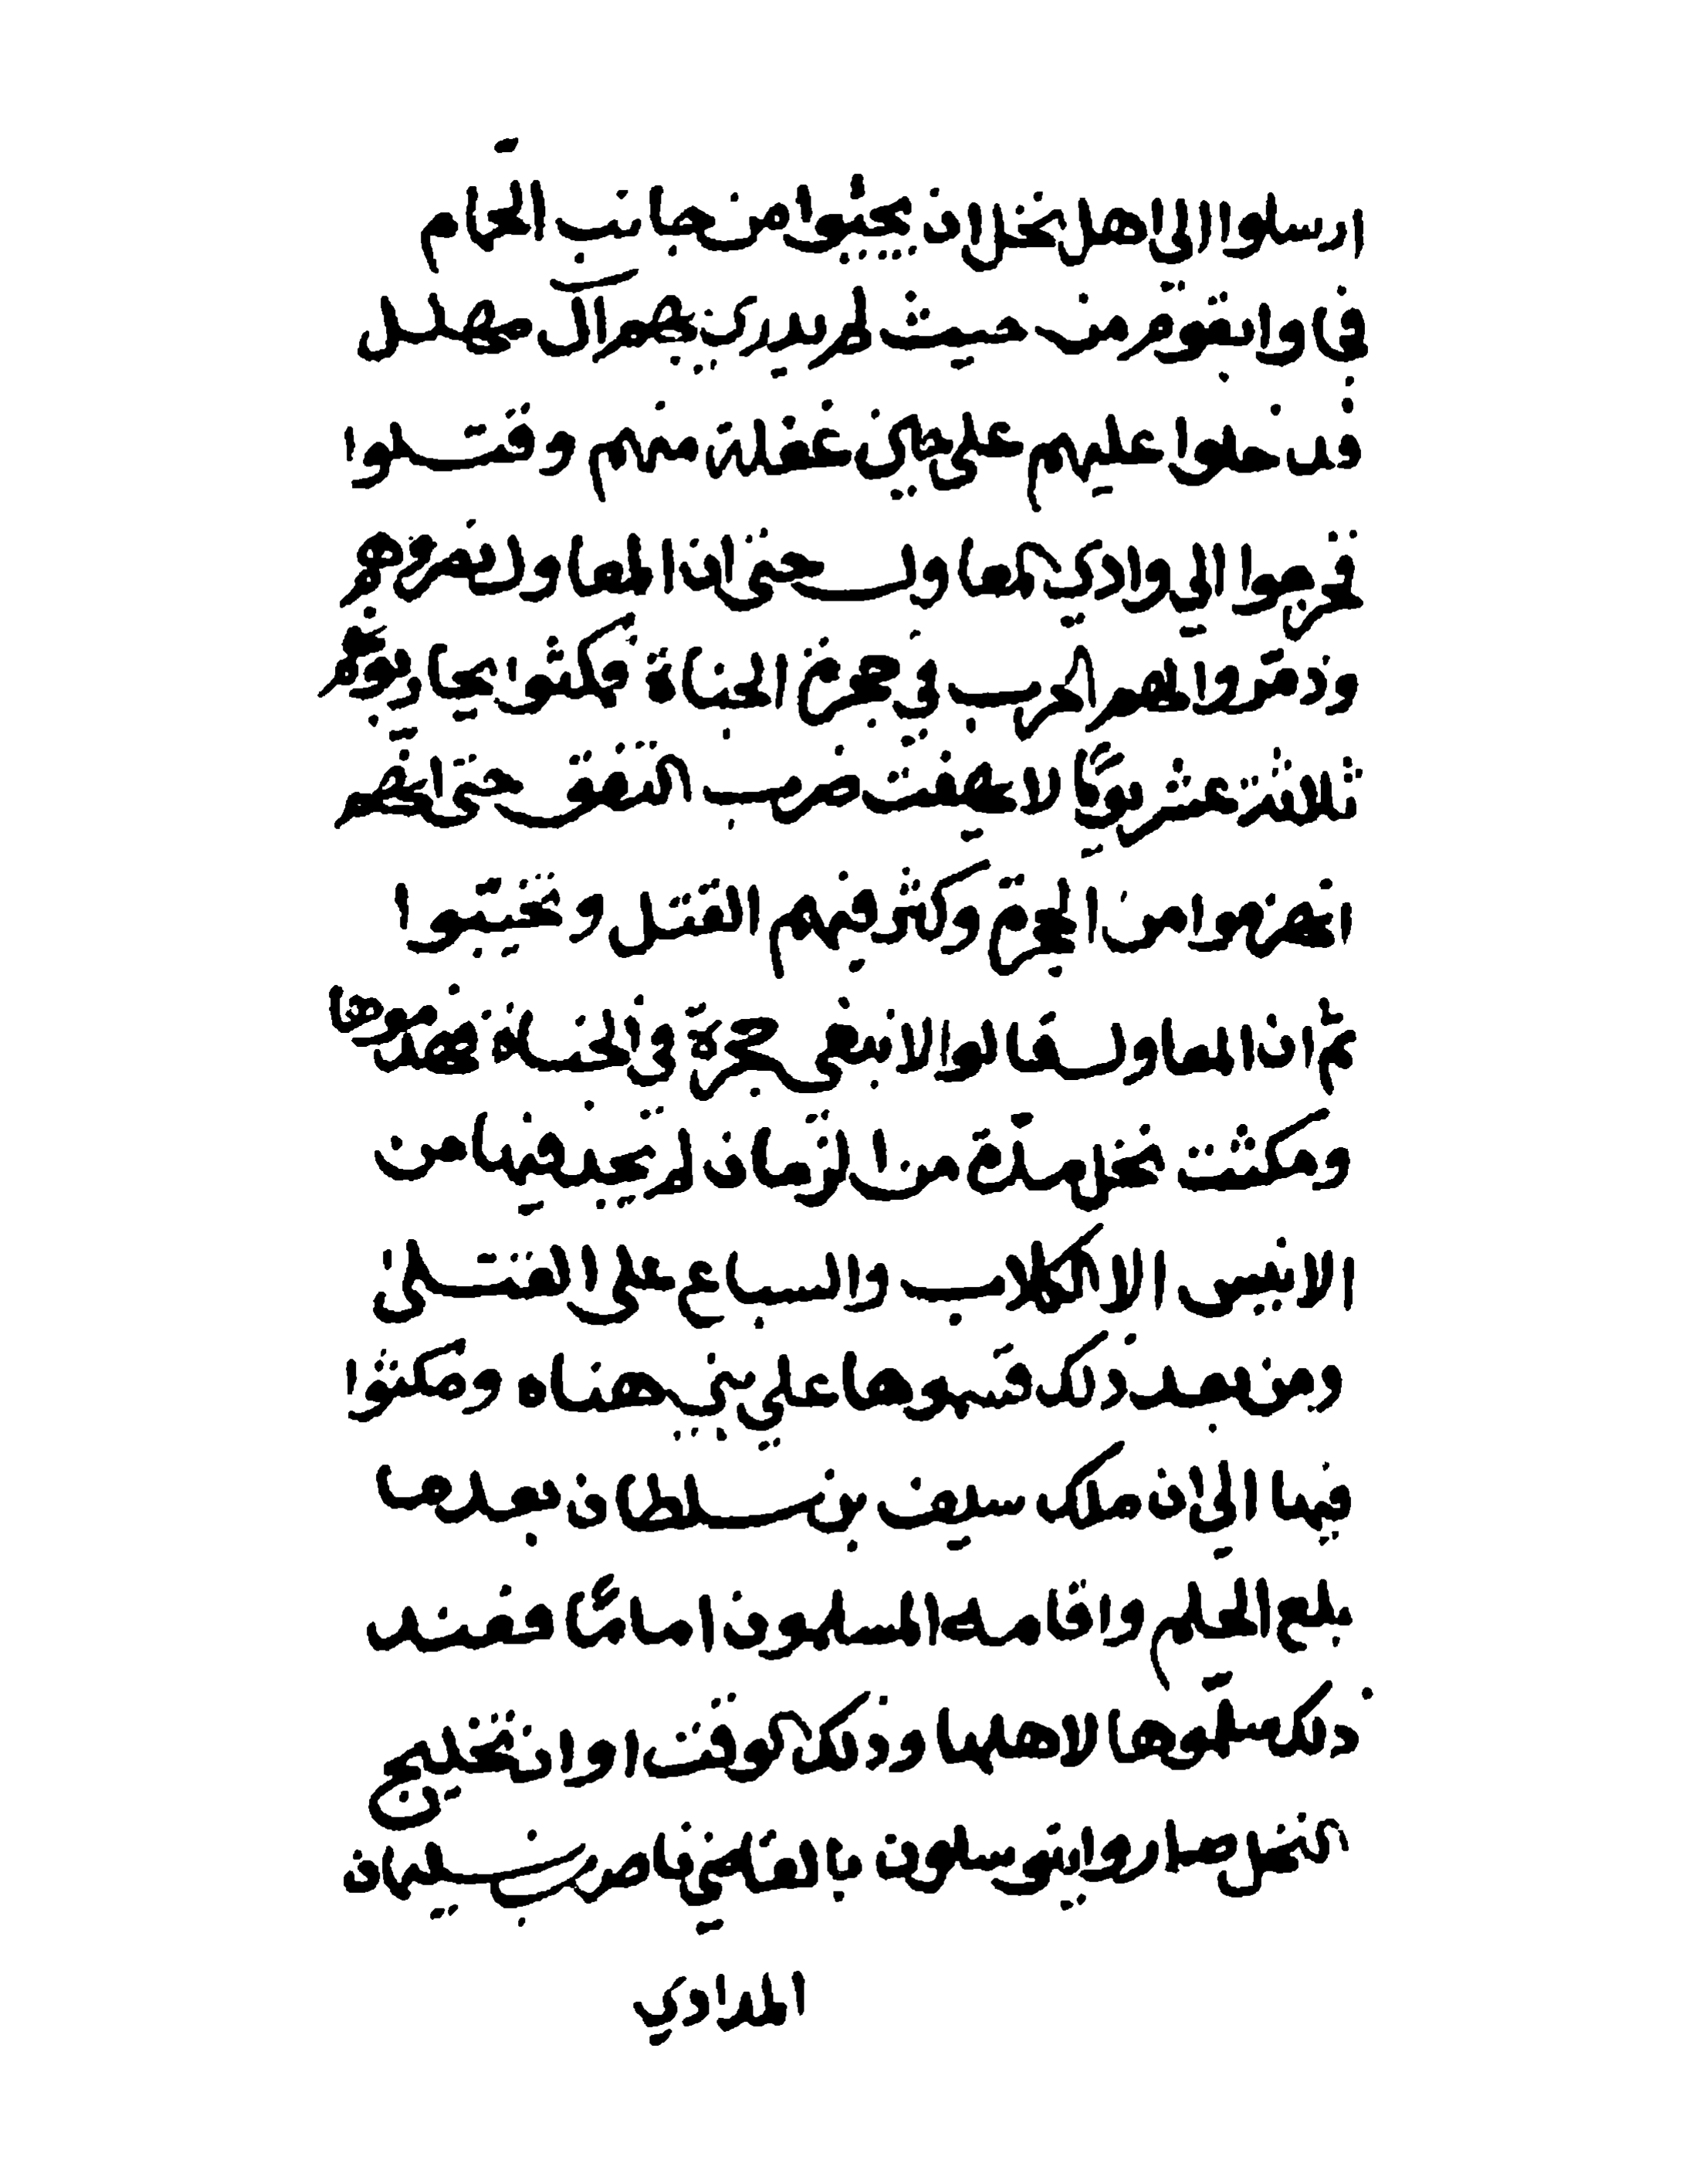 ارسلوا الى اهل نخل ان يجيئوا من جانب الحمّام
في وابقوة من حيث لم يدري بهم آل مهلل
فدخلوا عليهم على حين غفلة منهم وقتلوا
فخرجوا الي وادي المعاول حتى ان المعاول نصروهم
وذمروا لهم الحرب في حجرة الجناة فمكثوا يحاربونهم
ثلاثة عشر يومًا لا يفت ضرب التفق حتى انهم
انهزموا من الحجرة وكثر فيهم القتل وتخيبوا
ثم ان المعاول قالوا لا نبغى حجرة في الجناة فهدموها
ومكثت نخل مدّة من الزمان لم يجد فيها من
الانيس الا الكلاب والسباع على القتلى
ومن بعد ذلك قسموها علي بني هناه ومكثوا
فيها الي ان ملك سيف بن سلطان بعدها
بلغ الحلم واقامه المسلمون امامًا فعند
ذلك سلّموها لاهلها وذلك الوقت اوان تخليج
النخل صاروا يتوسلون بالقاضي ناصر بن سليمان
المدادي